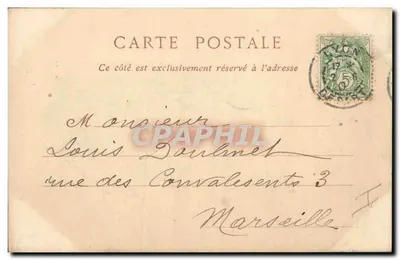 CARTE POSTALE
Ce côté est exclusivement réservé à l'adresse
LYON
5
DEPART
Monsieur
CPAPHIL
Louis Doulmet
rue des Convalesents 3
Marseille